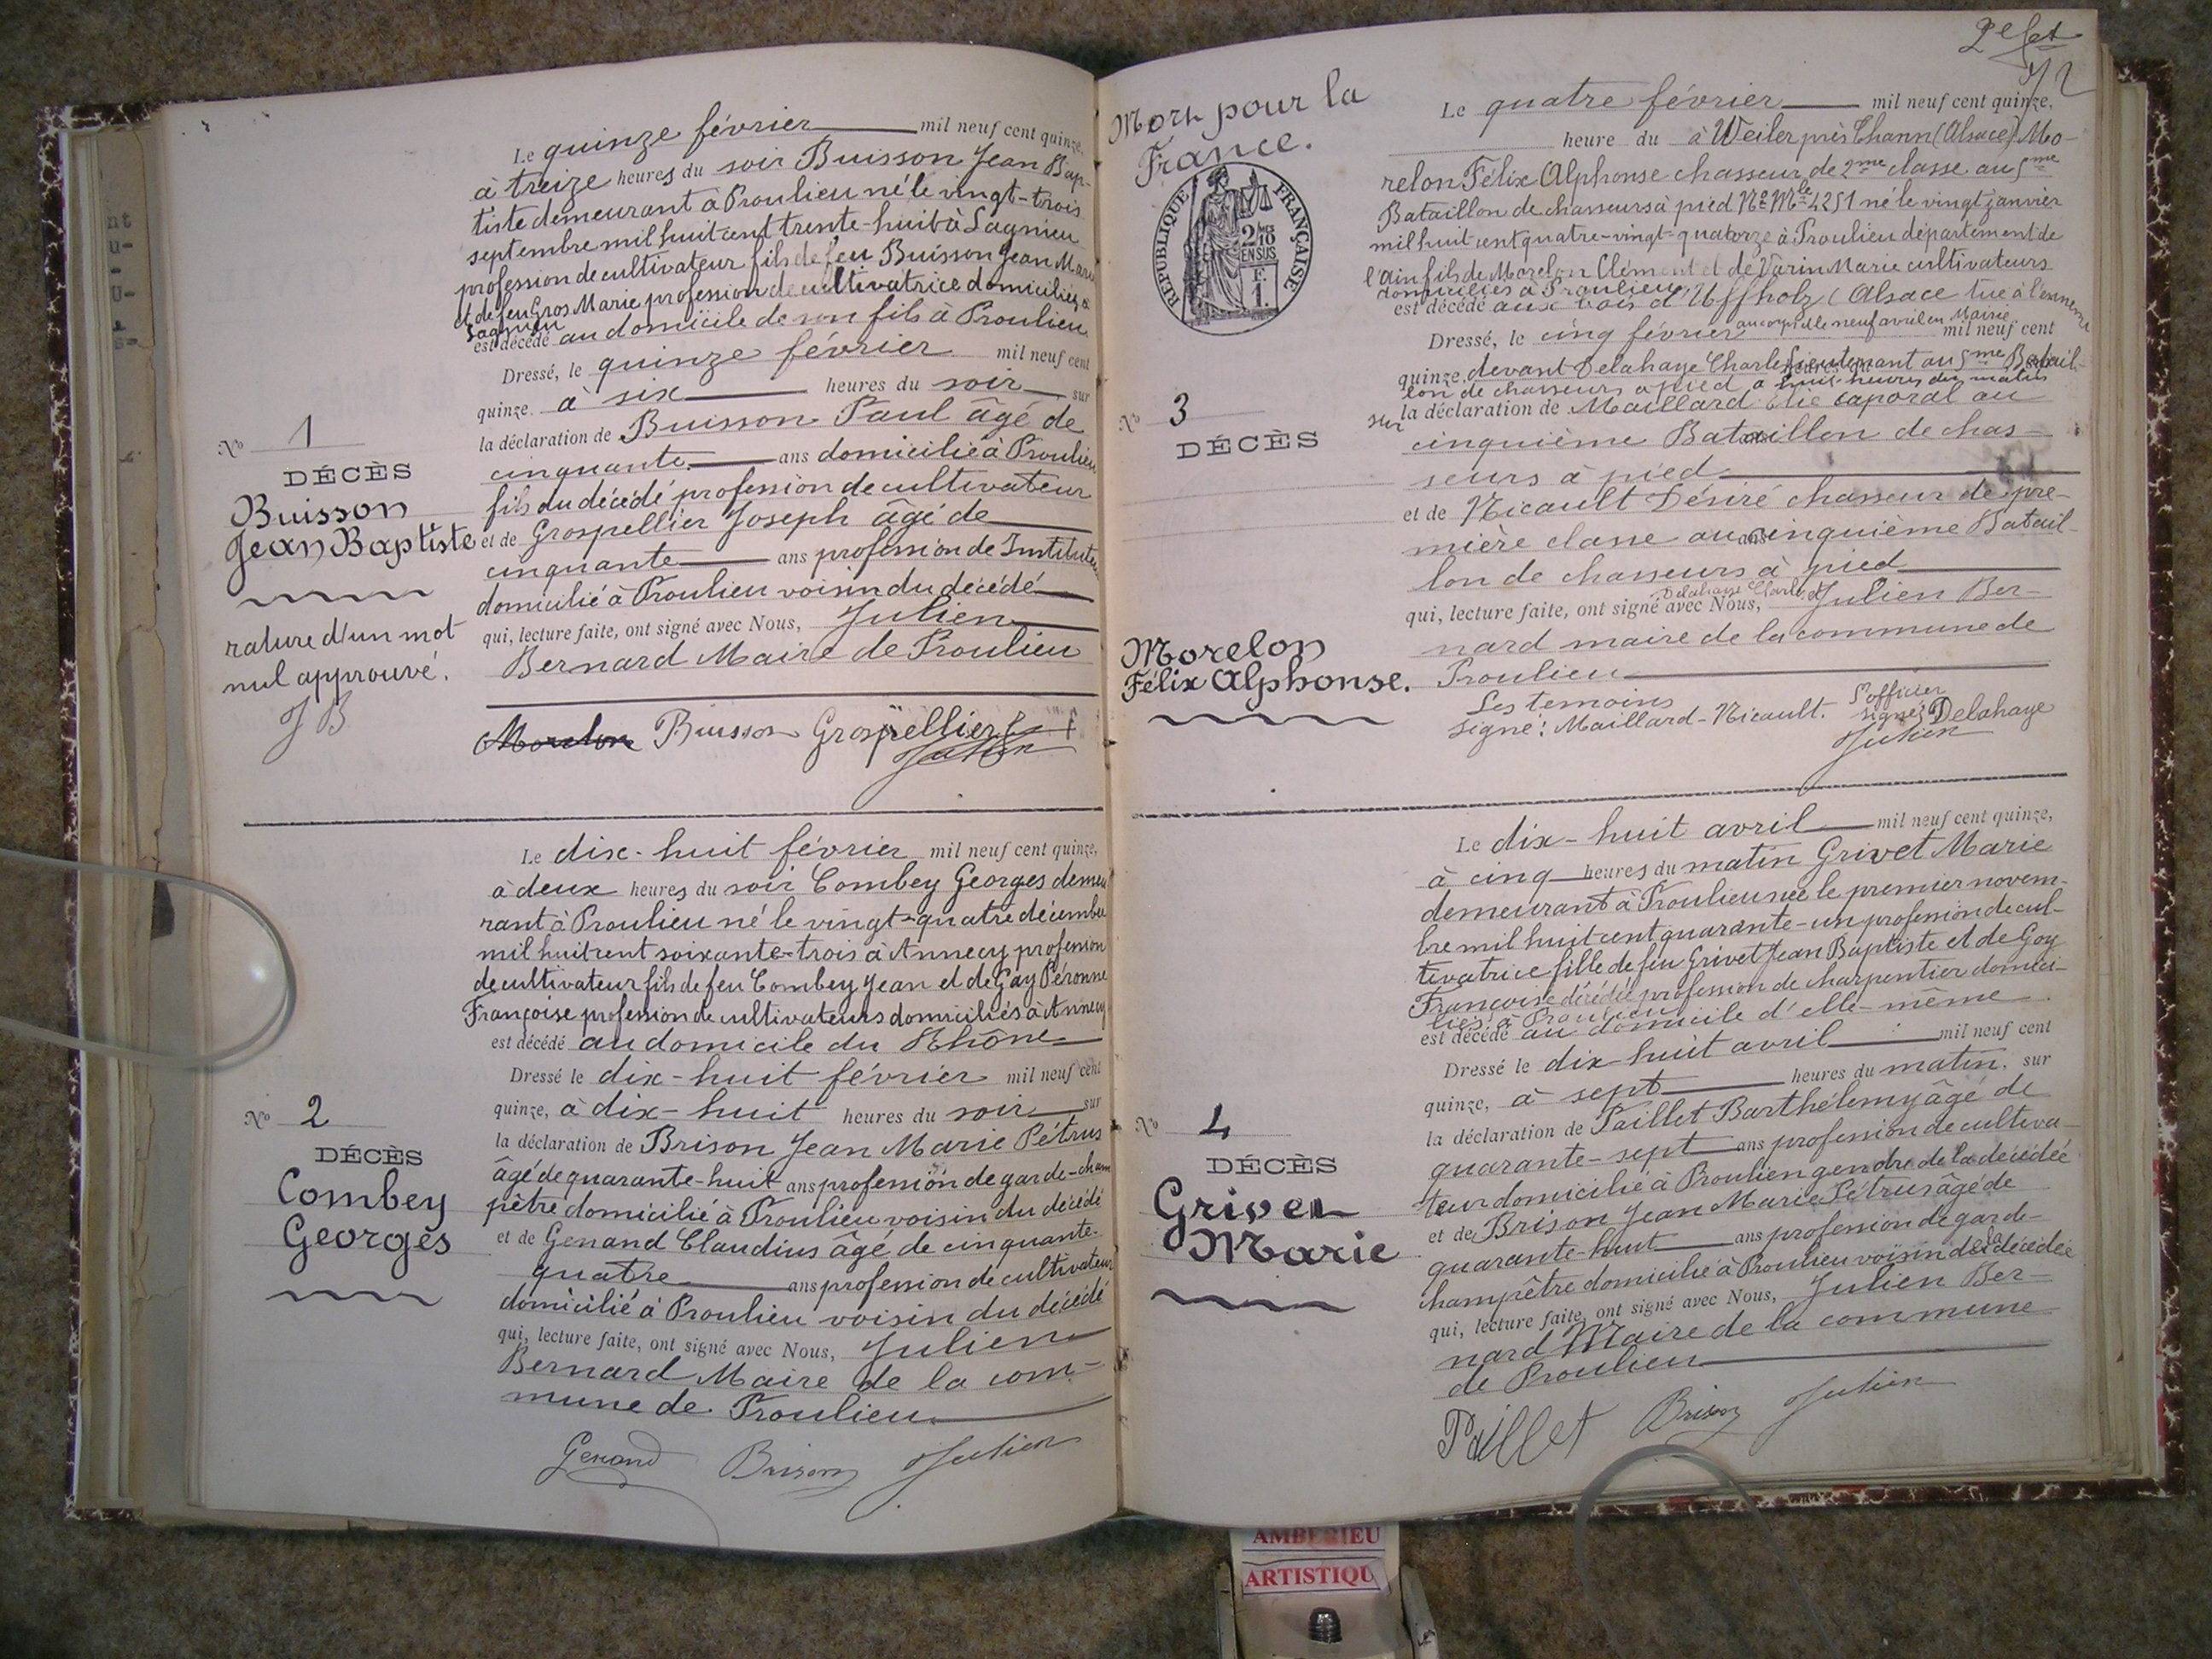 Le quinze février mil neuf cent quinze,
à treize heures du soir Buisson Jean Bap-
tiste demeurant à Proulieu né le vingt-trois
septembre mil huit cent trente-huit à Lagnieu
profession de cultivateur fils de feu Buisson Jean Marie
et de feu Gros Marie profession de cultivatrice domiciliés à
Lagnieu
est décédé au domicile de son fils à Proulieu
Dressé, le quinze février mil neuf cent
quinze à six heures du soir sur
la déclaration de Buisson Paul âgé de
cinquante ans domicilié à Proulieu
fils du décédé profession de cultivateur
et de Grospellier Joseph âgé de
cinquante ans profession de Instituteur
domicilié à Proulieu voisin du décédé
qui, lecture faite, ont signé avec Nous, Julien
Bernard Maire de Proulieu
Morelon Buisson Grospellier
Julien
No 1
DÉCÈS
Buisson
Jean Baptiste
rature d'un mot
nul approuvé.
J B
Le dix-huit février mil neuf cent quinze,
à deux heures du soir Combey Georges demeu
rant à Proulieu né le vingt-quatre décembre
mil huit cent soixante-trois à Annecy profession
de cultivateur fils de feu Combey Jean et de Gay Péronne
Françoise profession de cultivateurs domiciliés à Annecy
est décédé au domicile du Rhône
Dressé le dix-huit février mil neuf cent
quinze, à dix-huit heures du soir sur
la déclaration de Brison Jean Marie Pétrus
âgé de quarante-huit ans profession de garde-cham
pêtre domicilié à Proulieu voisin du décédé
et de Genand Claudius âgé de cinquante-
quatre ans profession de cultivateur
domicilié à Proulieu voisin du décédé
qui, lecture faite, ont signé avec Nous, Julien
Bernard Maire de la com-
mune de Proulieu
Genand Brison Julien
No 2
DÉCÈS
Combey
Georges
2e fet
Mort pour la
France.
RÉPUBLIQUE FRANÇAISE
2/10
EN SUS
F.
1.
Le quatre février mil neuf cent quinze,
heure du à Weiler près Thann (Alsace) Mo-
relon Félix Alphonse chasseur de 2me classe au 5me
Bataillon de chasseurs à pied No Mle 4251 né le vingt janvier
mil huit cent quatre-vingt-quatorze à Proulieu département de
l'Ain fils de Morelon Clément et de Varin Marie cultivateurs
domiciliés à Proulieu
est décédé aux bois d'Uffholz (Alsace tué à l'ennemi
Dressé, le cinq février mil neuf cent
quinze devant Delahaye Charles lieutenant au 5me Batail-
lon de chasseurs à pied à huit heures du matin
sur la déclaration de Maillard Elie caporal au
cinquième Bataillon de chas-
seurs à pied
et de Nicault Désiré chasseur de pre-
mière classe au cinquième Batail-
lon de chasseurs à pied
Delahaye Charles et
qui, lecture faite, ont signé avec Nous, Julien Ber-
nard maire de la commune de
Proulieu
Les temoins L'officier
signé: Maillard-Nicault. signé: Delahaye
Julien
No 3
DÉCÈS
Morelon
Félix Alphonse.
Le dix-huit avril mil neuf cent quinze,
à cinq heures du matin Grivet Marie
demeurant à Proulieu née le premier novem-
bre mil huit cent quarante-un profession de cul-
tivatrice fille de feu Grivet Jean Baptiste et de Goy
Françoise décédée profession de charpentier domici-
liés à Proulieu
est décédé au domicile d'elle-même
Dressé le dix huit avril mil neuf cent
quinze, à sept heures du matin, sur
la déclaration de Paillet Barthélemy âgé de
quarante-sept ans profession de cultiva-
teur domicilié à Proulieu gendre de la décédée
et de Brison Jean Marie Pétrus âgé de
quarante-huit ans profession de garde-
champêtre domicilié à Proulieu voisin de la décédée
qui, lecture faite, ont signé avec Nous, Julien Ber-
nard Maire de la commune
de Proulieu
Paillet Brison Julien
No 4
DÉCÈS
Grivet
Marie
AMBERIEU
ARTISTIQU